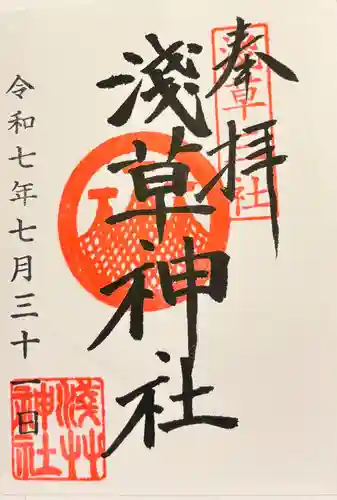 奉拝
淺草神社
令和七年七月三十一日
淺草三社
淺草神社